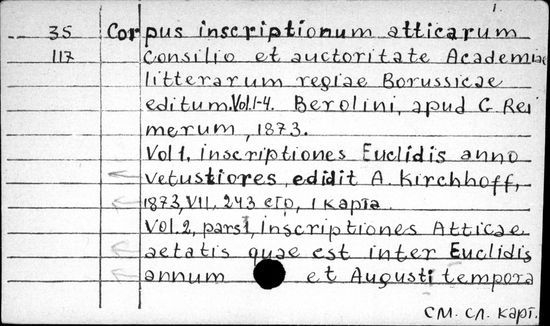 1.
35 Corpus inscriptionum atticarum
117 consilio et auctoritate Academiae
litterarum regiae Borussicae
editum. Vol. 1-4. Berolini, apud G. Rei
merum, 1873.
Vol 1, inscriptiones Euclidis anno
vetustiores, edidit A. Kirchhoff,
1873, VII, 243 стр, 1 карта.
Vol. 2, pars 1, inscriptiones Atticae
aetatis quae est inter Euclidis
annum et Augusti tempora
см. сл. карт.